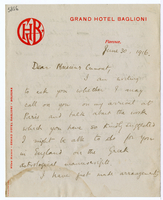 GRAND HOTEL BAGLIONI
Florence,
June 30. 1916.
Dear Madame Cumont,
I am writing
to ask you whether I may
call on you on my arrival at
Paris and talk about the work
which you have so kindly suggested
I might be able to do for you
in England in the Greek
Astrological manuscripts.
I have just made arrangements